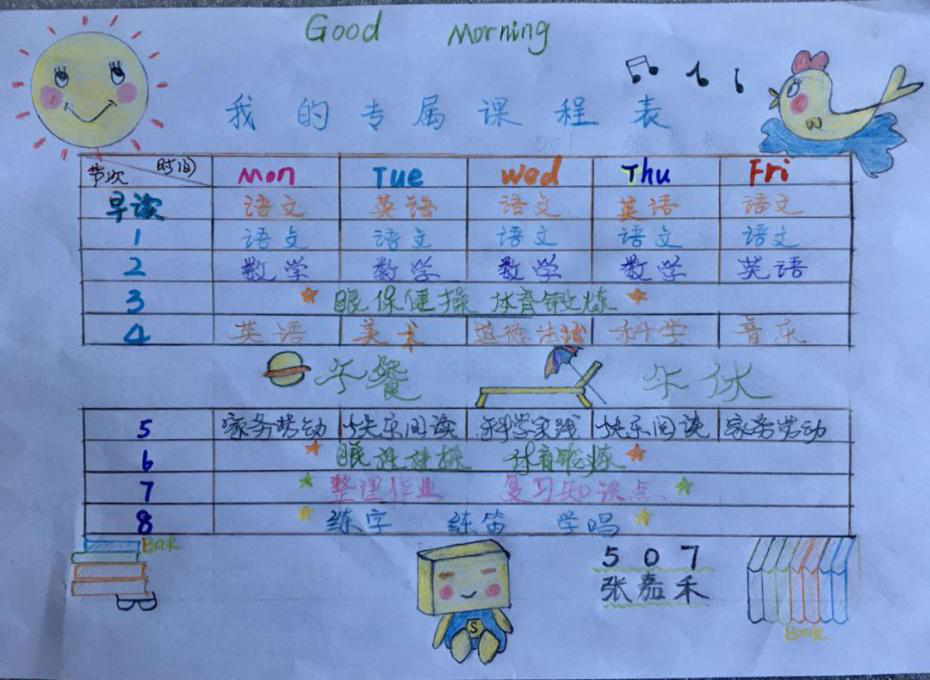 Good Morning
我的专属课程表
节次 时间 Mon Tue Wed Thu Fri
早读 语文 英语 语文 英语 语文
1 语文 语文 语文 语文 语文
2 数学 数学 数学 数学 英语
3 眼保健操 体育锻炼
4 英语 美术 道德法治 科学 音乐
午餐 午休
5 家务劳动 快乐阅读 科学实践 快乐阅读 家务劳动
6 眼保健操 体育锻炼
7 整理作业 复习知识点
8 练字 练笛 学唱
Book
507
张嘉禾
S
Book